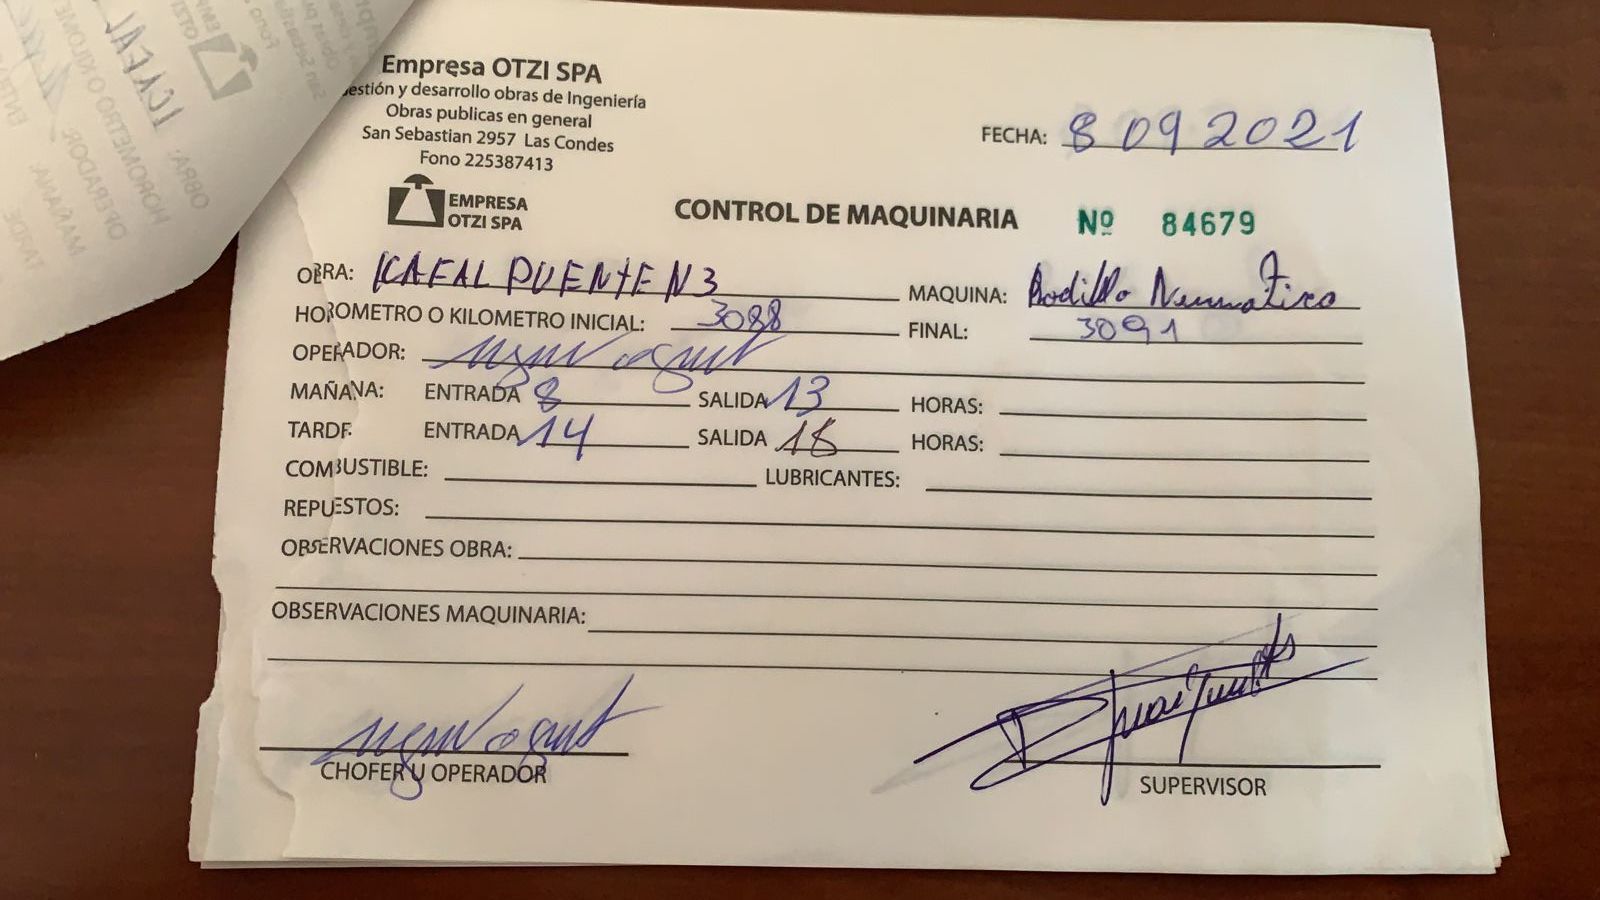 Empresa OTZI SPA
estión y desarrollo obras de Ingeniería
Obras publicas en general
San Sebastian 2957 Las Condes
Fono 225387413
FECHA: 8 09 2021
EMPRESA
OTZI SPA
CONTROL DE MAQUINARIA Nº 84679
OBRA: ICAFAL PUENTE N3 MAQUINA: Rodillo Neumatico
HOROMETRO O KILOMETRO INICIAL: 3088 FINAL: 3091
OPERADOR:
MAÑANA: ENTRADA 8 SALIDA 13 HORAS:
TARDE ENTRADA 14 SALIDA 18 HORAS:
COMBUSTIBLE: LUBRICANTES:
REPUESTOS:
OBSERVACIONES OBRA:
OBSERVACIONES MAQUINARIA:
CHOFER U OPERADOR SUPERVISOR